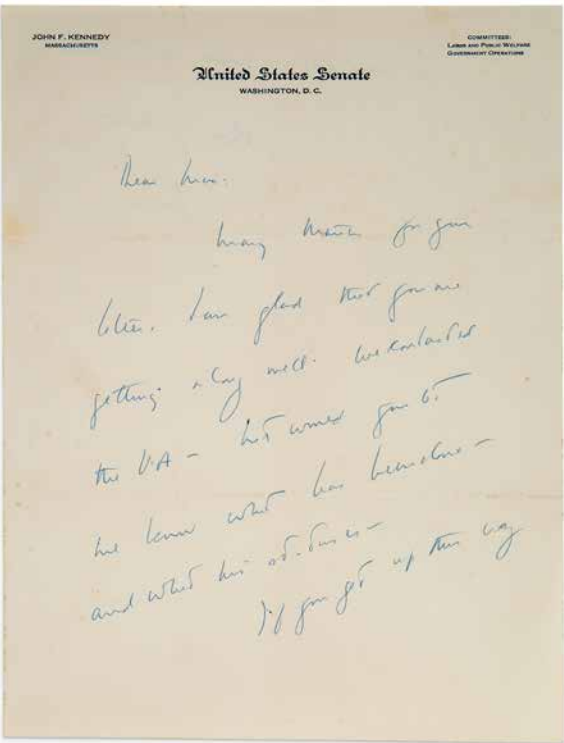 JOHN F. KENNEDY
MASSACHUSETTS
COMMITTEES:
LABOR AND PUBLIC WELFARE
GOVERNMENT OPERATIONS
United States Senate
WASHINGTON, D. C.
Dear
Many thanks for your
letter. I am glad that you are
getting along well. We contacted
the V.A –
me know what has been done –
and what his
If you get up this way